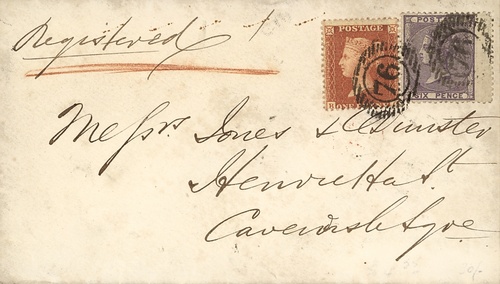 Registered
POSTAGE
POSTAG
76
76
SIX PENCE
Messrs Jones &
Henrietta St
Cavendish Sqre